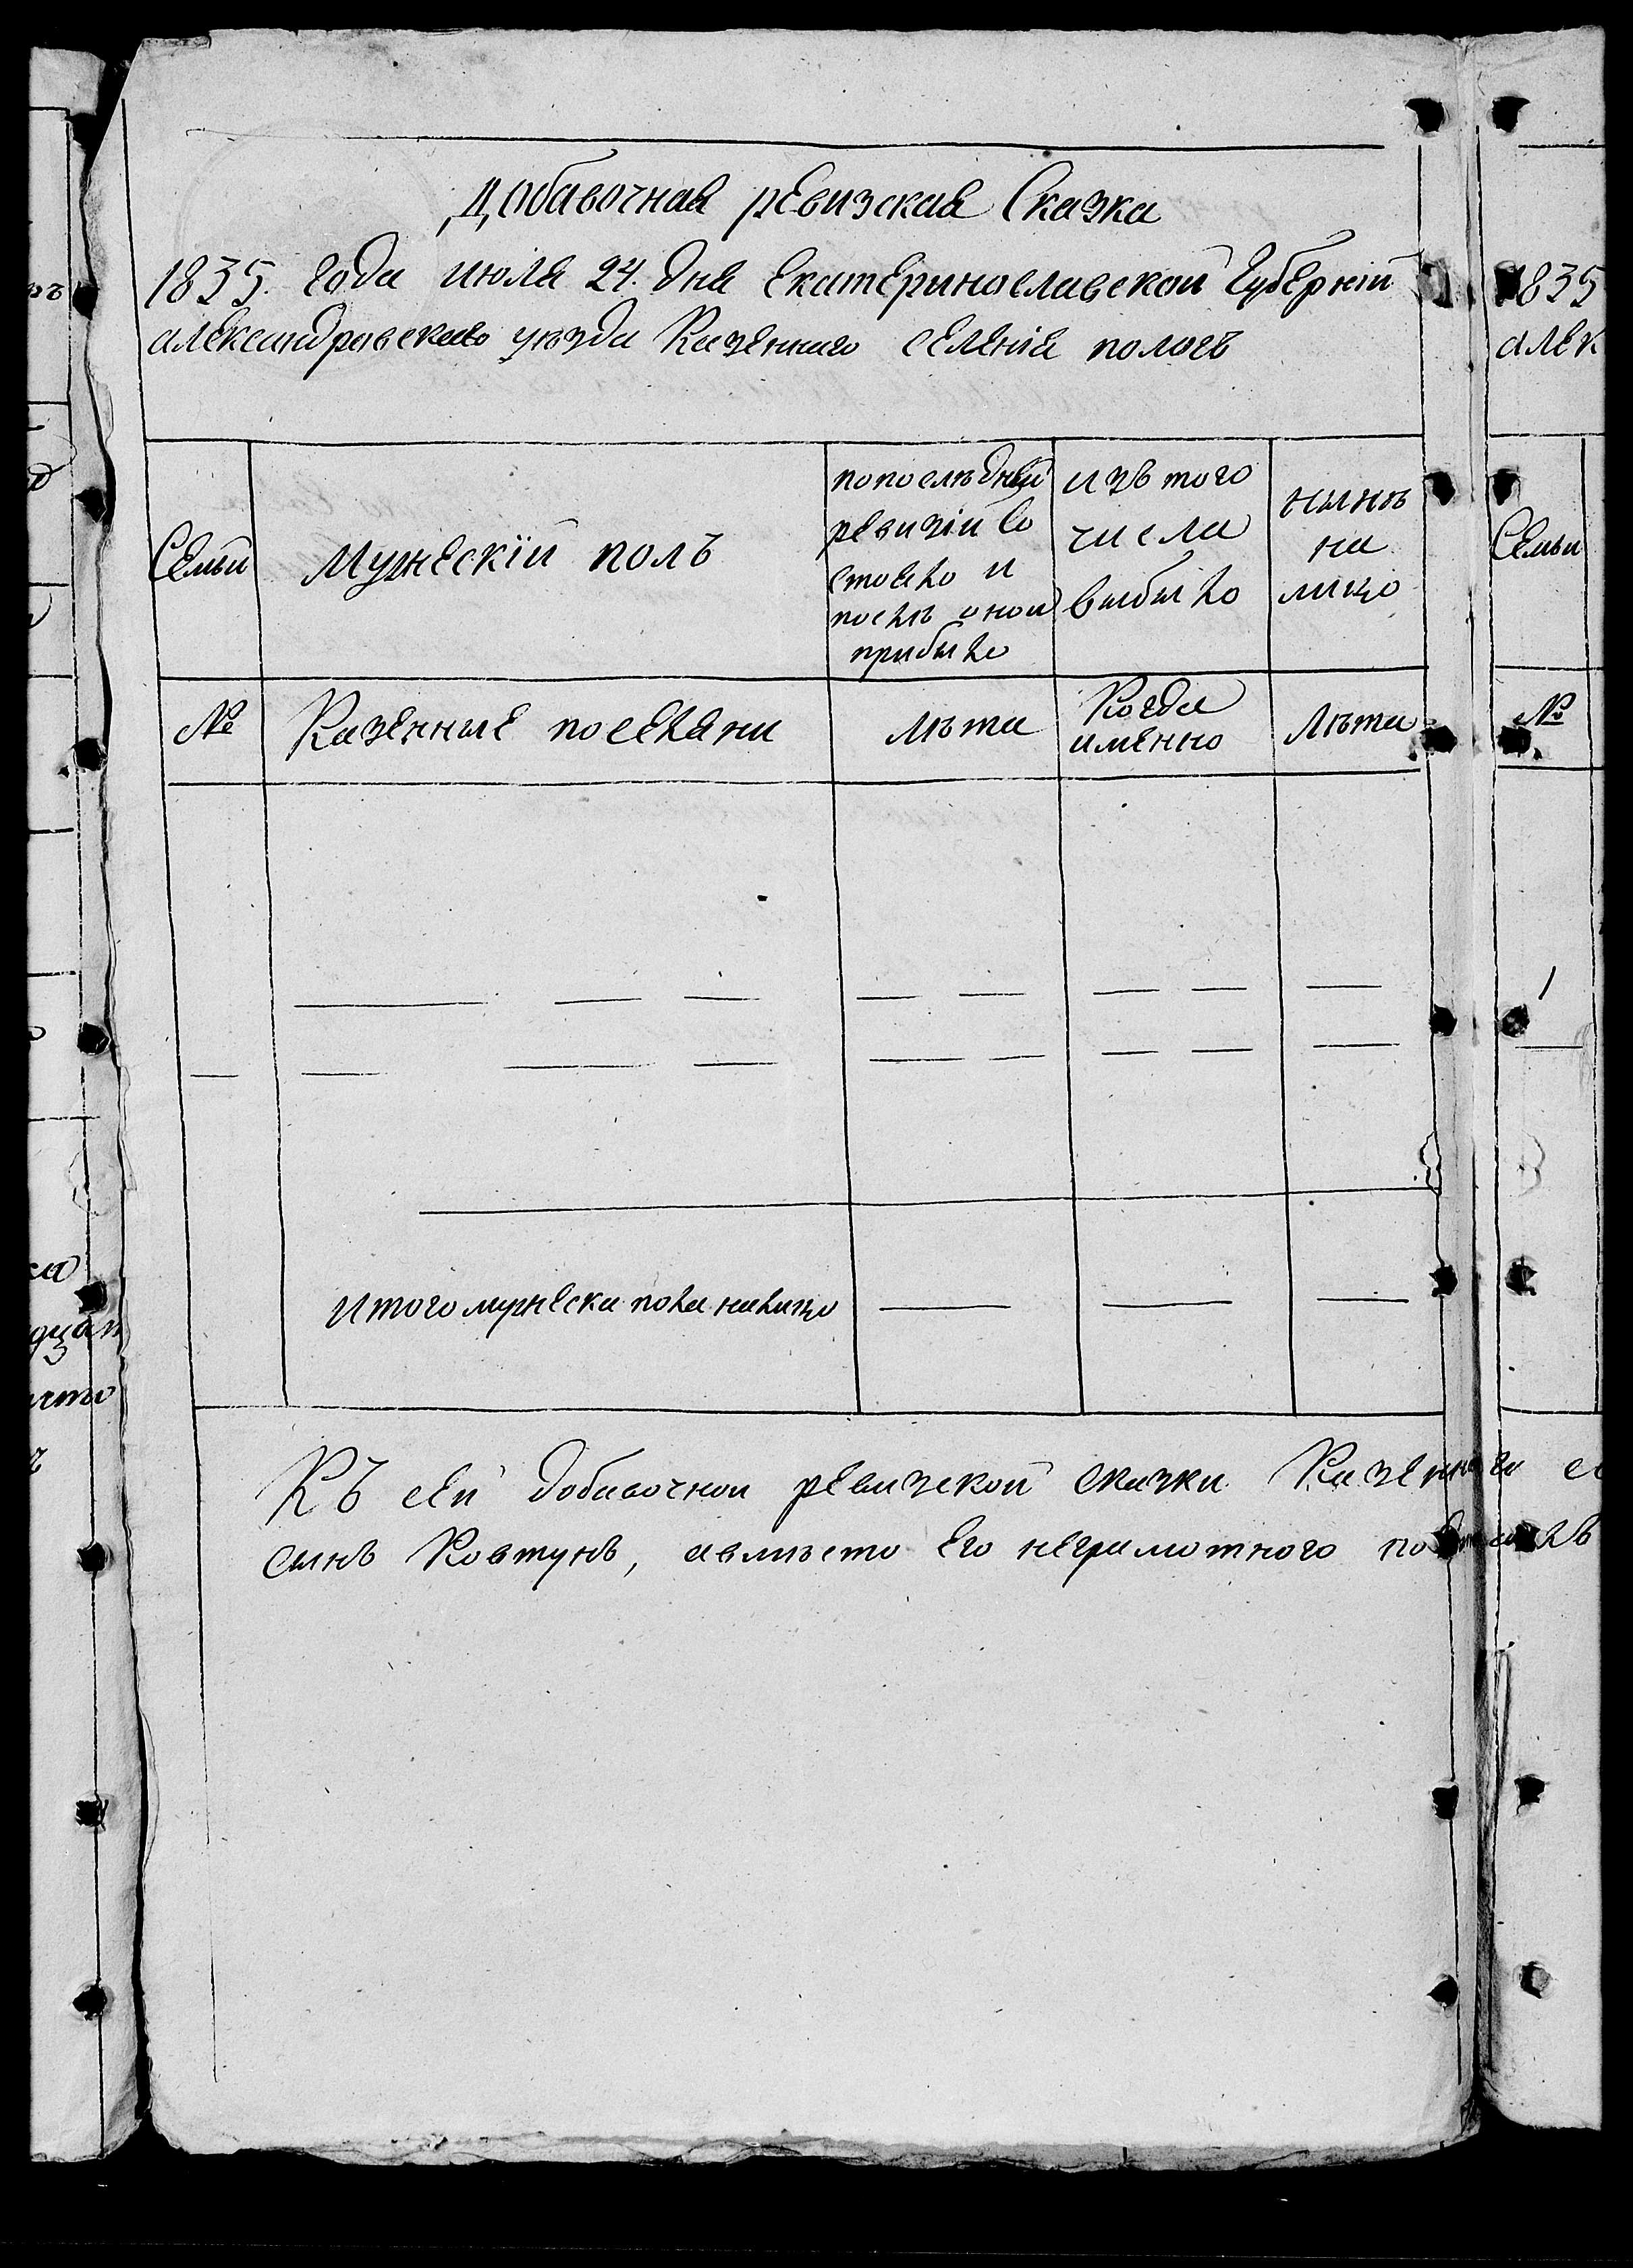 Добавочная ревизская Сказка
1835. года июля 24. дня Екатеринославской губернїи
александровскаго уѣзда Казеннаго селенїя пологъ
Семьи
Мужескїй полъ
попослѣдней
ревизїи со
стояло и
послѣ оной
прибыло
изъ того
числа
выбыло
нынѣ
на
лицо
№
Казенные поселяни
лѣта
Когда
именно
Лѣта
Итого мужеска пола налицо
Къ сей добавочной ревизской сказки Казеннаго се
сынъ Ковтунъ, авмѣсто его неграмотного
1835
алек
Семьи
№
1